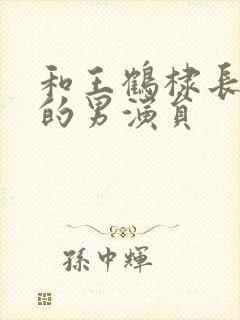 和王鶴棣長
的男演員
孫中輝